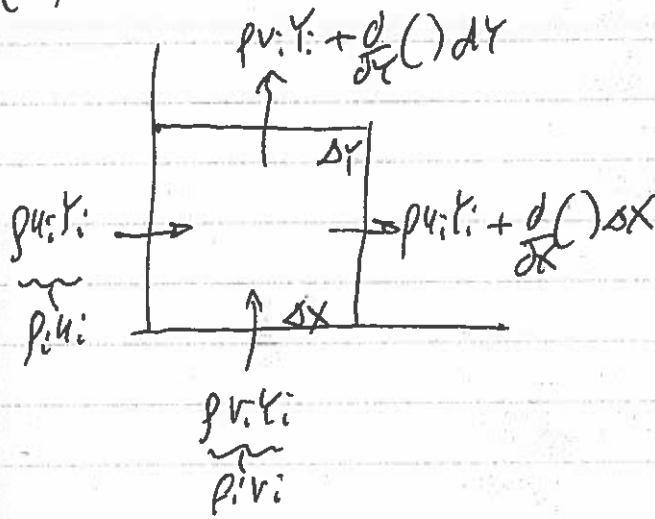 ρv_iY_i + d/dY ( ) dY
ΔY
ρu_iY_i
ρu_iY_i + d/dX ( ) ΔX
ρ_iu_i
ΔX
ρv_iY_i
ρ_iv_i